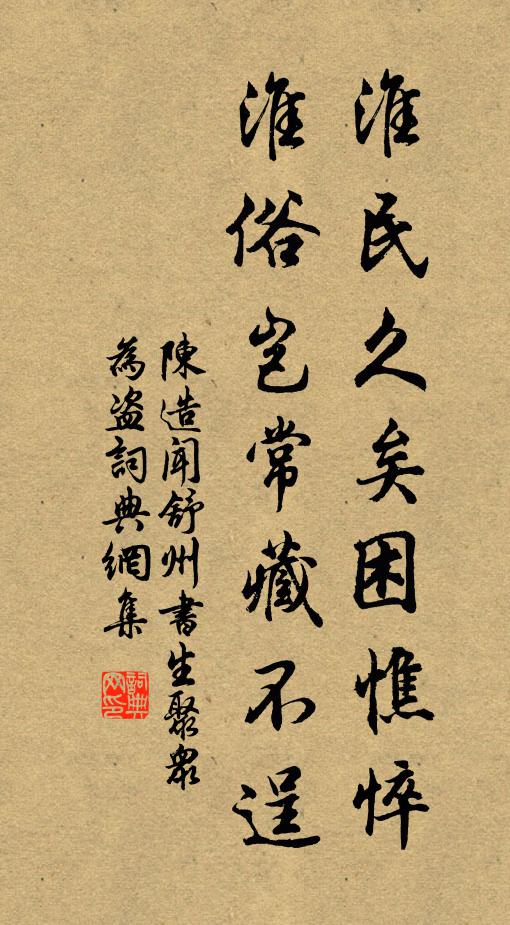 淮民久矣困憔悴
淮俗豈常藏不逞
陳造聞舒州書生聚衆
為盗詞典網集
詞典
网印